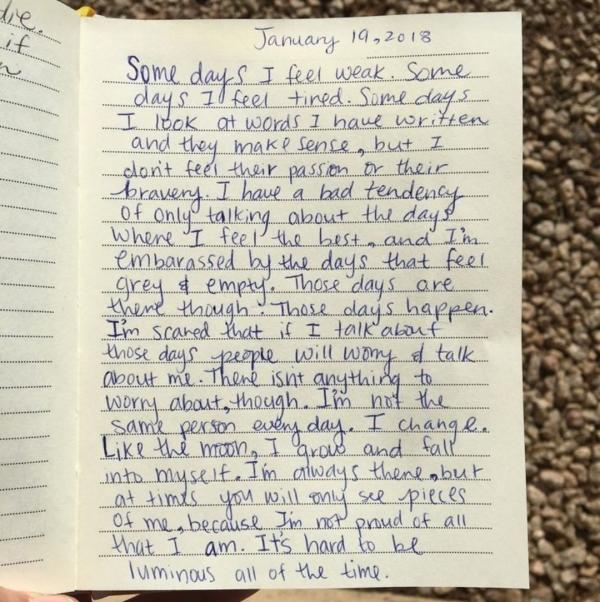 die.
if
January 19, 2018
Some days I feel weak. Some
days I feel tired. Some days
I look at words I have written
and they make sense, but I
don't feel their passion or their
bravery. I have a bad tendency
of only talking about the days
where I feel the best, and I'm
embarassed by the days that feel
grey & empty. Those days are
there though. Those days happen.
I'm scared that if I talk about
those days people will worry & talk
about me. There isnt anything to
worry about, though. I'm not the
same person every day. I change.
Like the moon, I grow and fall
into myself. I'm always there, but
at times you will only see pieces
of me, because I'm not proud of all
that I am. It's hard to be
luminous all of the time.